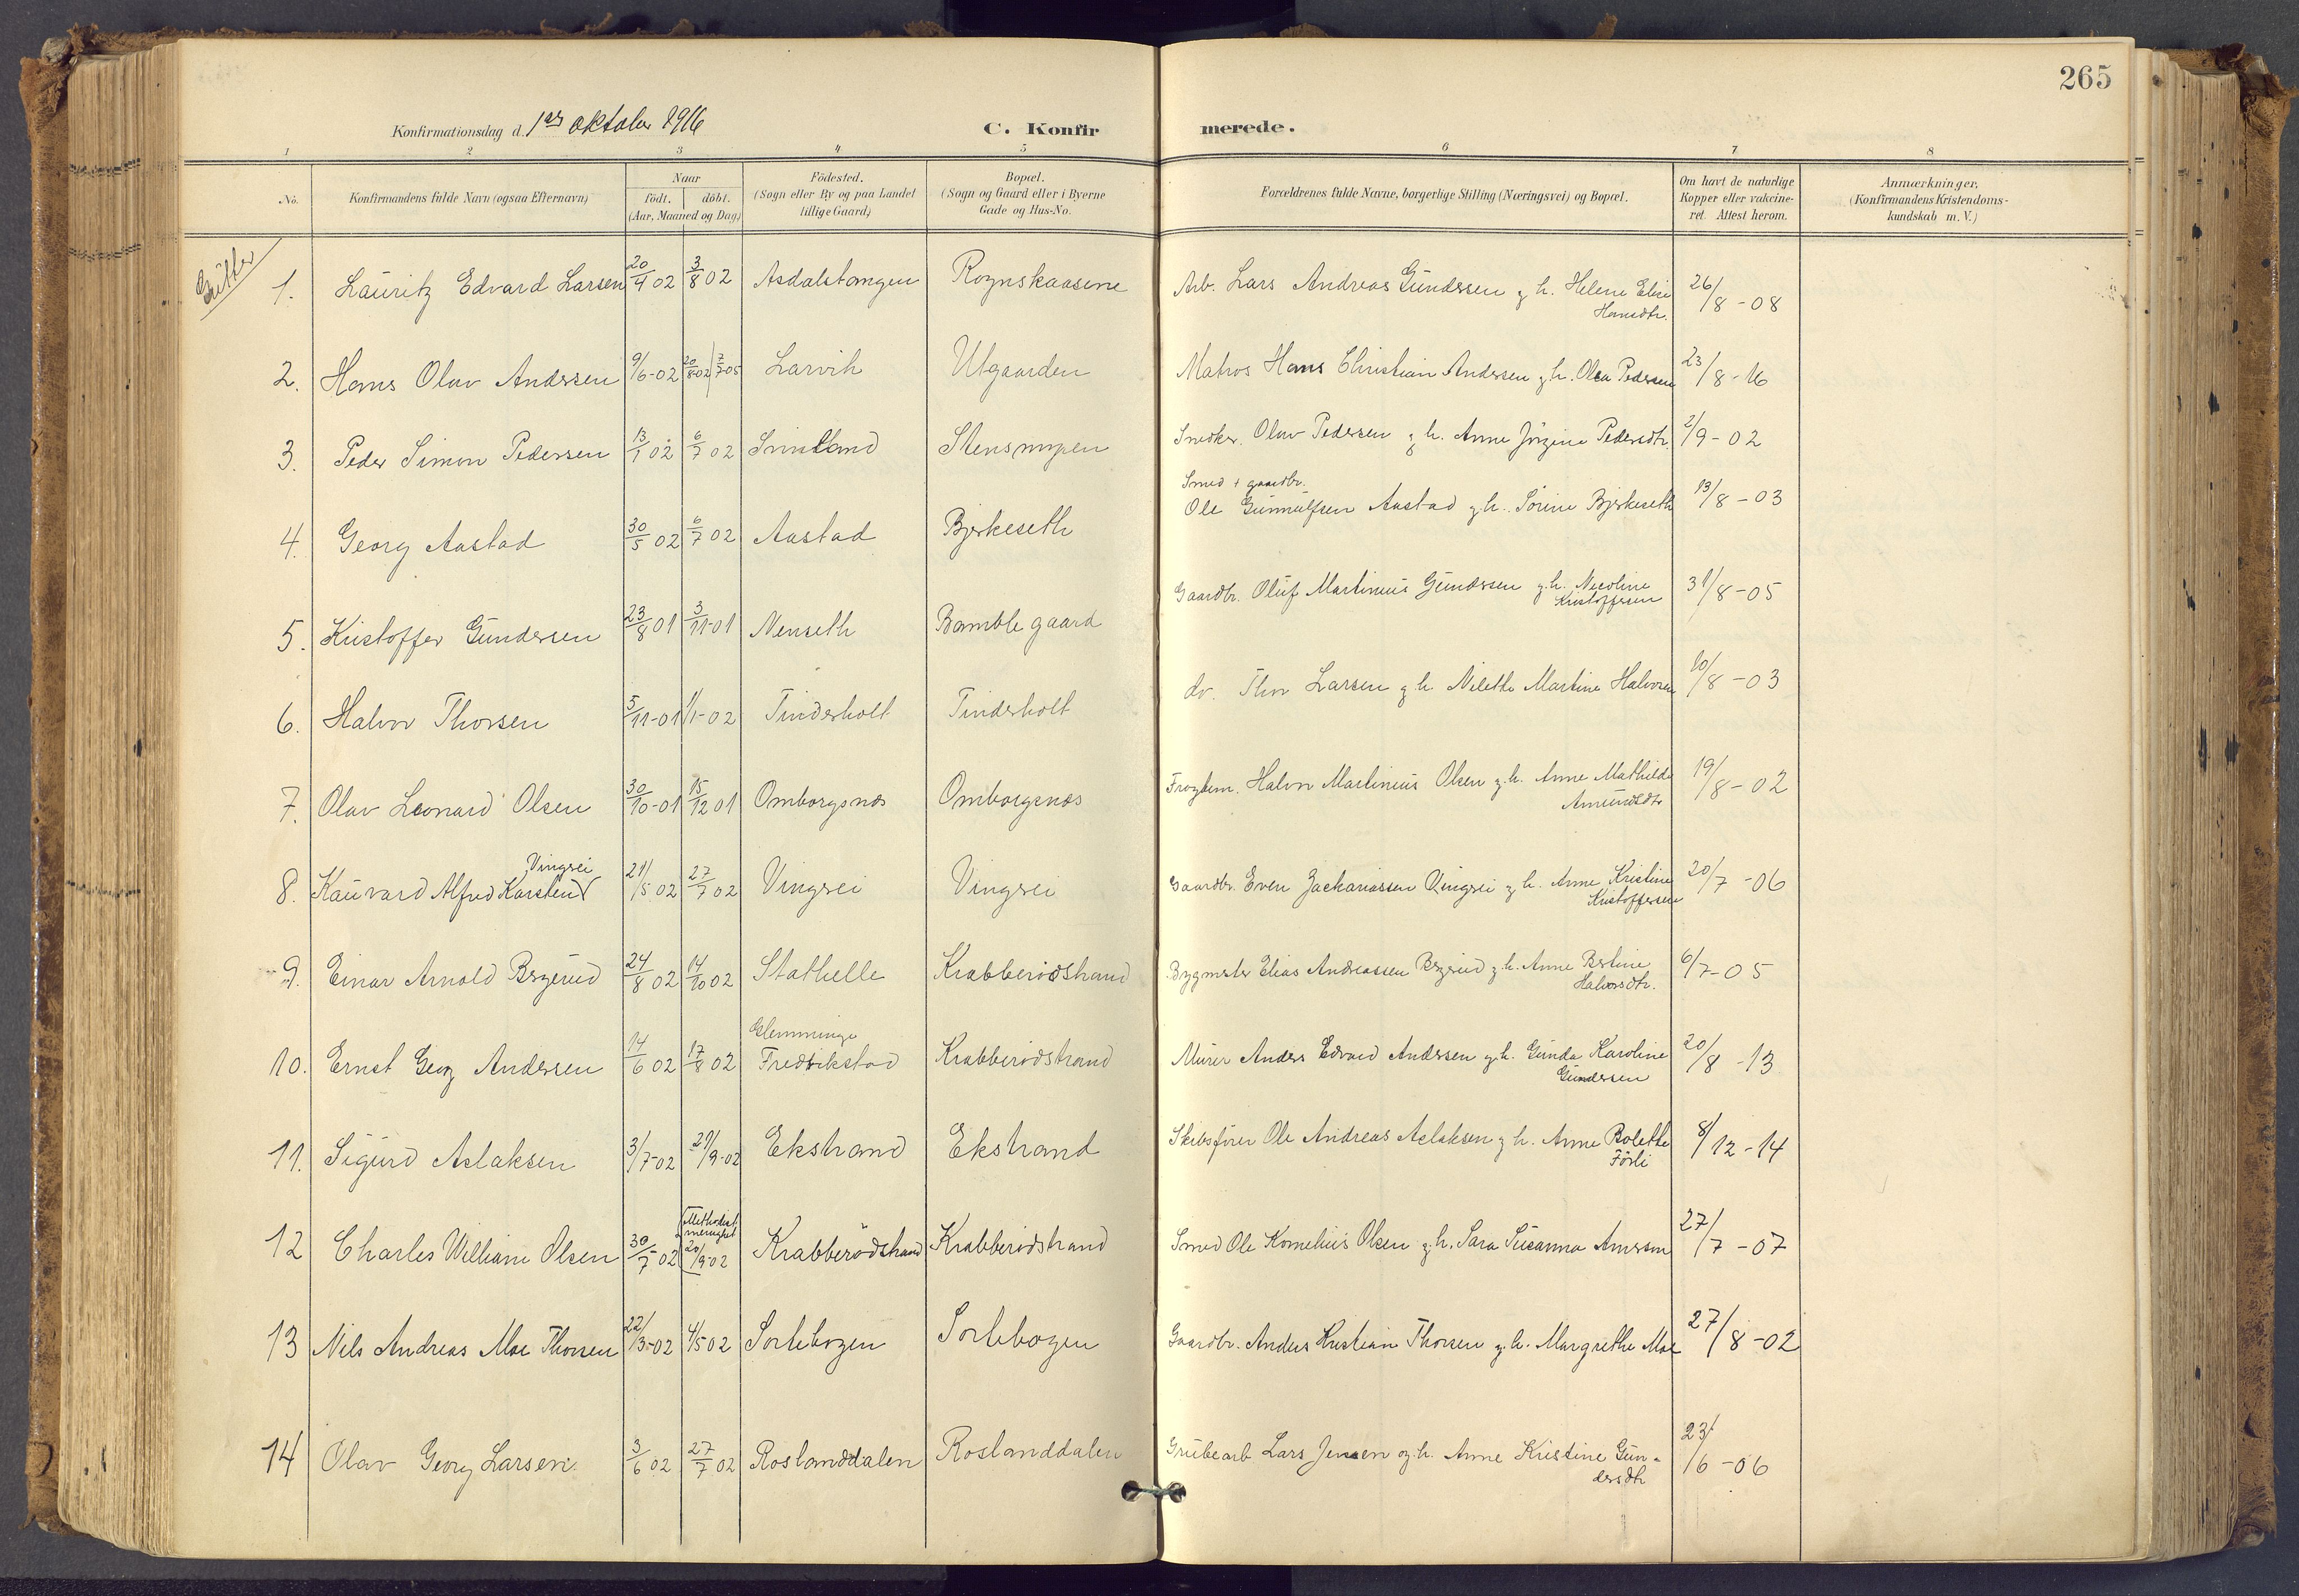 265
Konfirmationsdag d. 1ste oktober 1916
C. Konfirmerede.
1 2 3 4 5 6 7 8
No. Konfirmandens fulde Navn (ogsaa Efternavn) Naar födt. döbt. (Aar, Maaned og Dag) Födested. (Sogn eller By og paa Landet tillige Gaard) Bopæl. (Sogn og Gaard eller i Byerne Gade og Hus-No. Forældrenes fulde Navne, borgerlige Stilling (Næringsvei) og Bopæl. Om havt de naturlige Kopper eller vakcineret. Attest herom. Anmærkninger, (Konfirmandens Kristendomskundskab m. V.)
Gutter
1. Lauritz Edvard Larsen 20/4 02 3/8 02 Asdalstangen Rognskaasene Arb. Lars Andreas Gundersen g. h. Helene Elise Hansdtr. 26/8-08
2. Hans Olav Andersen 9/6-02 20/8-02 7/7-05 Larvik Utgaarden Matros Hans Christian Andersen g. h. Olea Pedersen 23/8-16
3. Peder Simon Pedersen 13/1 02 6/7 02 Stensmyren Snedker. Olav Pedersen g. h. Anne Jörgine Pedersdtr. 2/9-02
4. Georg Aastad 30/5 02 6/7 02 Aastad Bjerkeseth Smed + gaardbr. Ole Gunnulfsen Aastad g. h. Sörine Bjerkeseth 13/8-03
5. Kristoffer Gundersen 23/8 01 3/11-01 Nenseth Bamble gaard Gaardbr. Oluf Martinius Gundersen g. h. Nicoline Kristoffersen 31/8-05
6. Halvor Thorsen 5/11-01 1/1-02 Tinderholt Tinderholt do. Thor Larsen g. h. Nilethe Martine Halvorsen 10/8-03
7. Olav Leonard Olsen 30/10-01 15/12 01 Omborgsnes Omborgsnes Halvor Martinius Olsen g. h. Anne Mathilde Amundsdtr 19/8-02
8. Kauvard Alfred Karsten Vingrei 21/5 02 27/7 02 Vingrei Vingrei Gaardbr. Even Zachariassen Vingrei g. h. Anne Kristine Kristoffersen 20/7-06
9. Einar Arnold Bergerud 24/8 02 14/10 02 Stathelle Krabberödstrand Bygmster Elias Andreassen Bergerud g. h. Anne Bertine Halvorsdtr. 6/7-05
10. Ernst Georg Andersen 14/6 02 17/8 02 Glemminge Fredrikstad Krabberödstrand Murer Anders Edvard Andersen g. h. Gunda Karoline Gundersen 20/8-13
11. Sigurd Aslaksen 3/7-02 21/9-02 Ekstrand Ekstrand Skibsförer Ole Andreas Aslaksen g. h. Anne Bolette Förli 8/12-14
12 Charles William Olsen 30/7 02 Methodist menighet 20/9 02 Krabberödstrand Krabberödstrand Smed Ole Kornelius Olsen g. h. Sara Susanna 27/7-07
13 Nils Andreas Moe Thorsen 22/3-02 4/5 02 Sortebogen Sortebogen Gaardbr. Anders Kristian Thorsen g. h. Margrethe Moe 27/8-02
14 Olav Georg Larsen 3/6 02 27/7 02 Roslanddalen Roslanddalen Grubearb Lars Jensen og h. Anne Kristine Gundersdtr 23/6-06